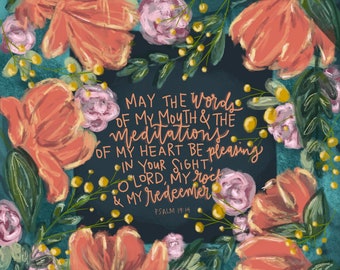 MAY THE words
OF MY MOUTH & THE
meditations
OF MY HEART BE pleasing
IN YOUR SIGHT,
O LORD, MY rock
& MY redeemer
PSALM 19:14